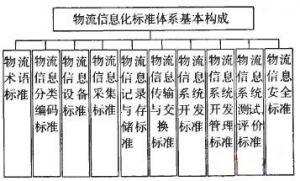 物流信息化标准体系基本构成
物流术语标准
物流信息分类编码标准
物流信息设备标准
物流信息采集标准
物流信息记录与存储标准
物流信息传输与交换标准
物流信息系统开发标准
物流信息系统开发管理标准
物流信息系统测试,评价标准
物流信息安全标准